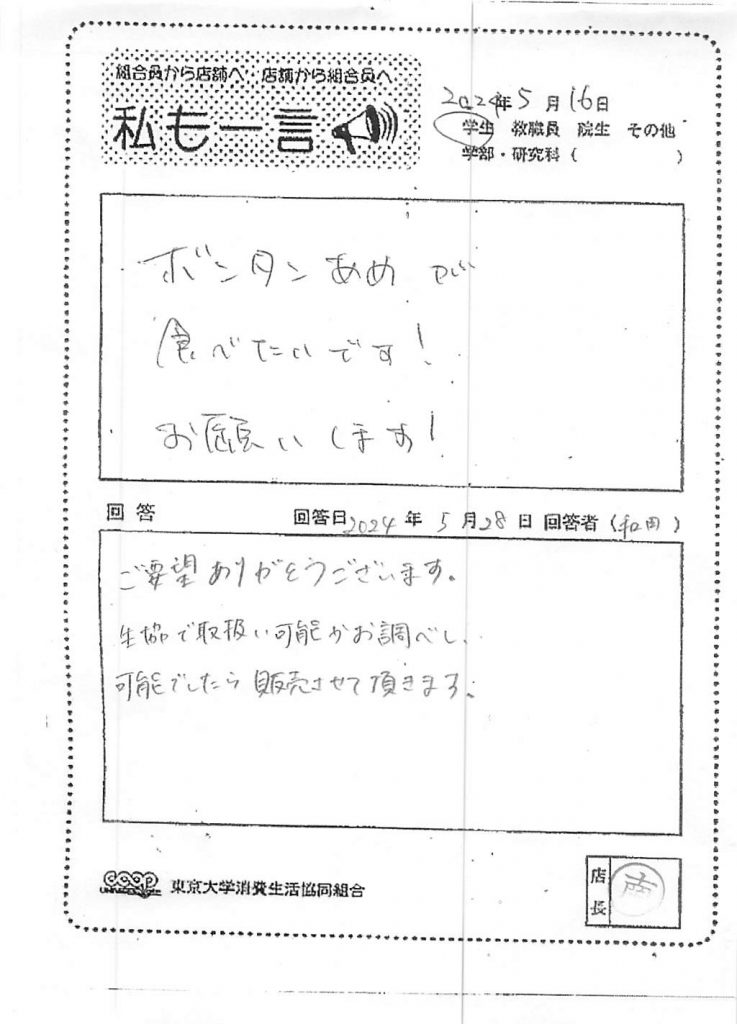 組合員から店舗へ 店舗から組合員へ
私も一言
2024年5月16日
学生 教職員 院生 その他
学部・研究科 ( )
ボンタンあめが
食べたいです!
お願いします!
回答 回答日2024年5月28日 回答者(和田)
ご要望ありがとうございます。
生協で取扱い可能かお調べし、
可能でしたら販売させて頂きます。
coop 東京大学消費生活協同組合
店長